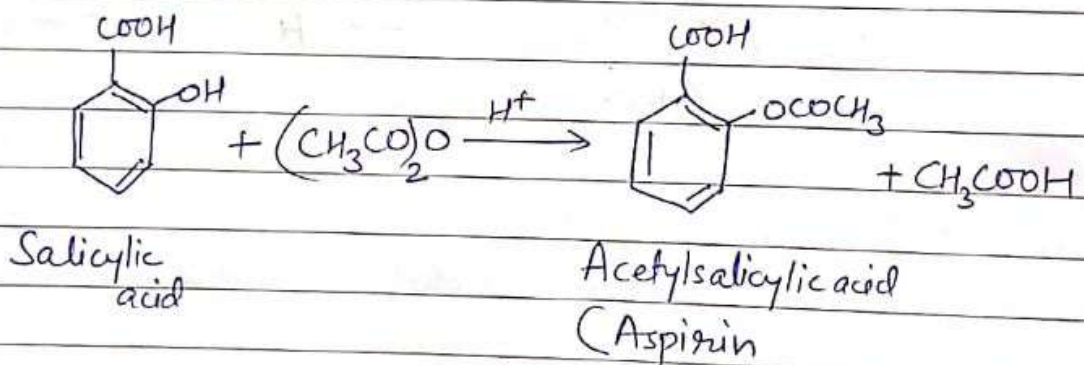 COOH COOH
OH OCOCH3
+ (CH3CO)2O H+ → + CH3COOH
Salicylic acid Acetylsalicylic acid
(Aspirin